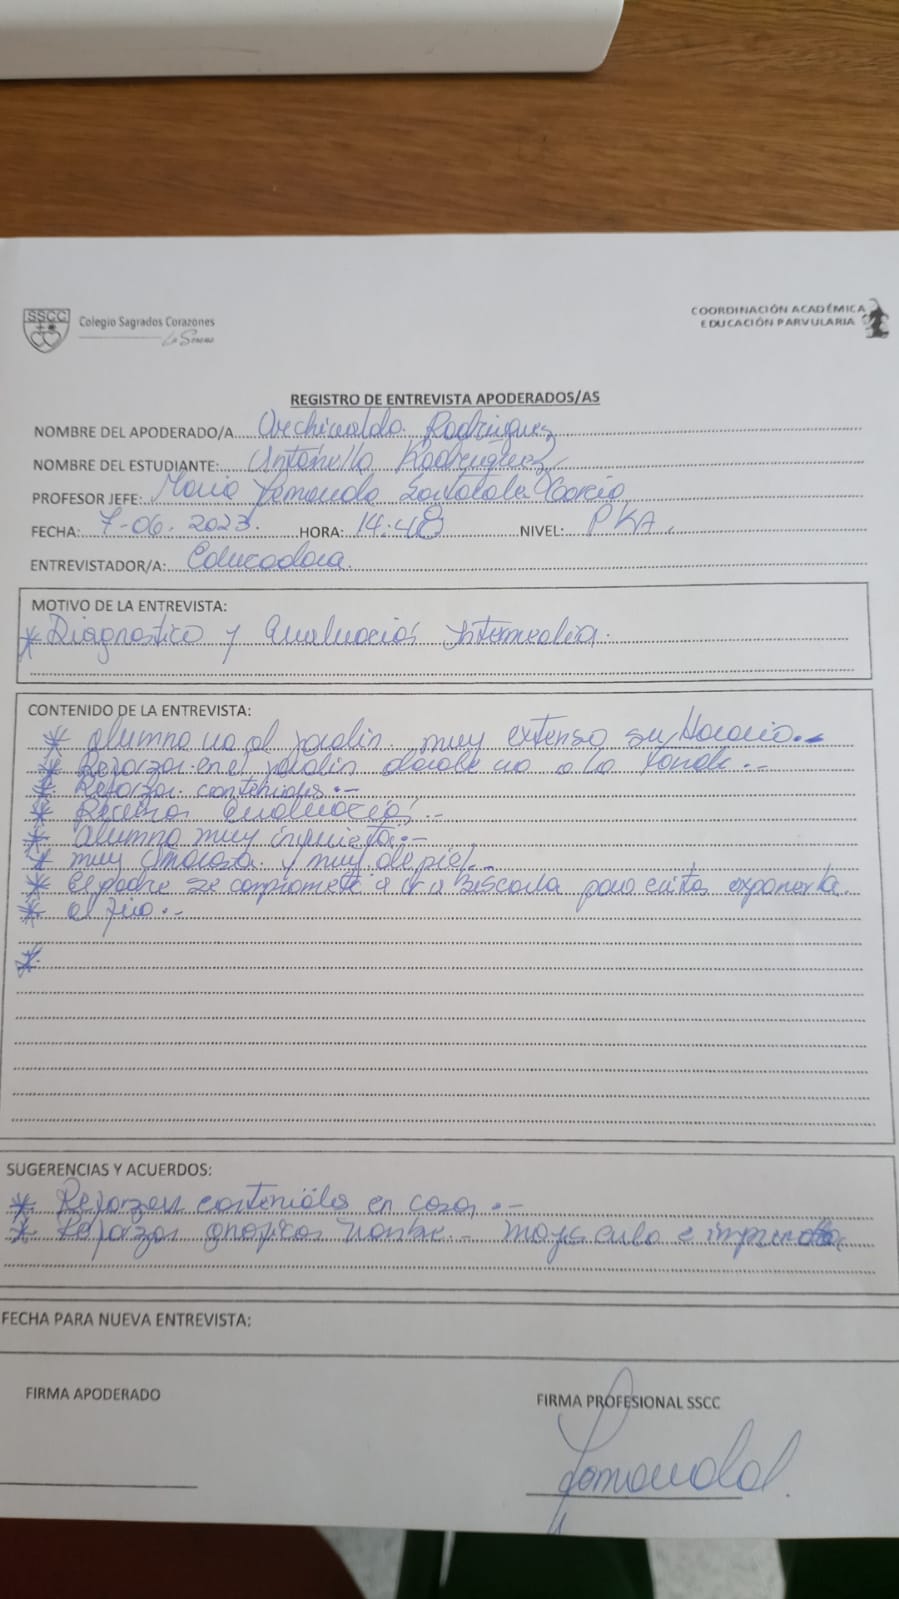 SSCC
Colegio Sagrados Corazones
La Serena
COORDINACIÓN ACADÉMICA
EDUCACIÓN PARVULARIA
REGISTRO DE ENTREVISTA APODERADOS/AS
NOMBRE DEL APODERADO/A Archivaldo Rodriguez
NOMBRE DEL ESTUDIANTE: Antonella Rodriguez
PROFESOR JEFE: Maria Fernanda
FECHA: 7-06-2023. HORA: 14:48 NIVEL: PKA.
ENTREVISTADOR/A: Educadora.
MOTIVO DE LA ENTREVISTA:
* Diagnostico y Evaluación Intermedia.
CONTENIDO DE LA ENTREVISTA:
* Alumna va al jardin. muy extenso su Horario.-
* Reforzar en el jardin donde va a la tarde.-
* Reforzar contenidos.-
* Evaluación.-
* Alumna muy inquieta.-
* muy amorosa y muy de piel.-
* El padre se compromete a para evitar exponerla
* al frio.-
*
SUGERENCIAS Y ACUERDOS:
* Reforzar contenidos en casa.-
* Reforzar nombre.- mayuscula e imprenta
FECHA PARA NUEVA ENTREVISTA:
FIRMA APODERADO
FIRMA PROFESIONAL SSCC